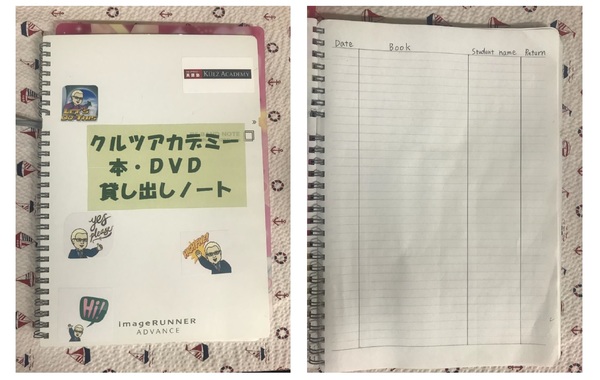 KUEZ ACADEMY
NOTE
クルツアカデミー
本・DVD
貸し出しノート
yes
please!
Hi!
imageRUNNER
ADVANCE
Date Book Student name Return